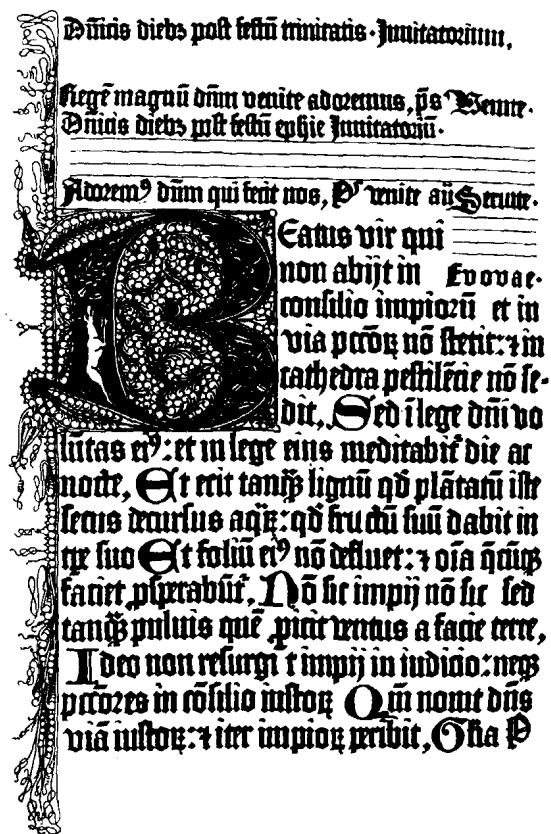 Dn̄icis dieb⁊ post festū trinitatis · Inuitatorium,
Regē magnū dn̄m venite adoremus, p̄s Venite ·
Dn̄icis dieb⁊ post festū ephīe Inuitatoriū ·
Adorem⁹ dn̄m qui fecit nos, Ps venite aū Seruite ·
Beatus vir qui
non abijt in Evovae ·
consilio impiorū et in
via pccōꝝ nō stetit : ⁊ in
cathedra pestilēcie nō se-
dit, Sed ī lege dn̄i vo
lūtas ei⁹ : et in lege eius meditabit᷑ die ac
nocte, Et erit tanqᷓ lignū qd̄ plātatū iste
secus decursus aqᷓꝝ : qd̄ fructū suū dabit in
tp̄e suo Et foliū ei⁹ nō defluet : ⁊ oīa q̄cūqᷓ
faciet ꝓsperabūt᷑, Nō sic impij nō sic sed
tanqᷓ puluis quē ꝓicit ventus a facie terre,
Ideo non resurgūt impij in iudicio : neqꝫ
pccōres in cōsilio iustoꝝ Qm̄ nouit dn̄s
viā iustoꝝ : ⁊ iter impioꝝ peribit, Glīa P